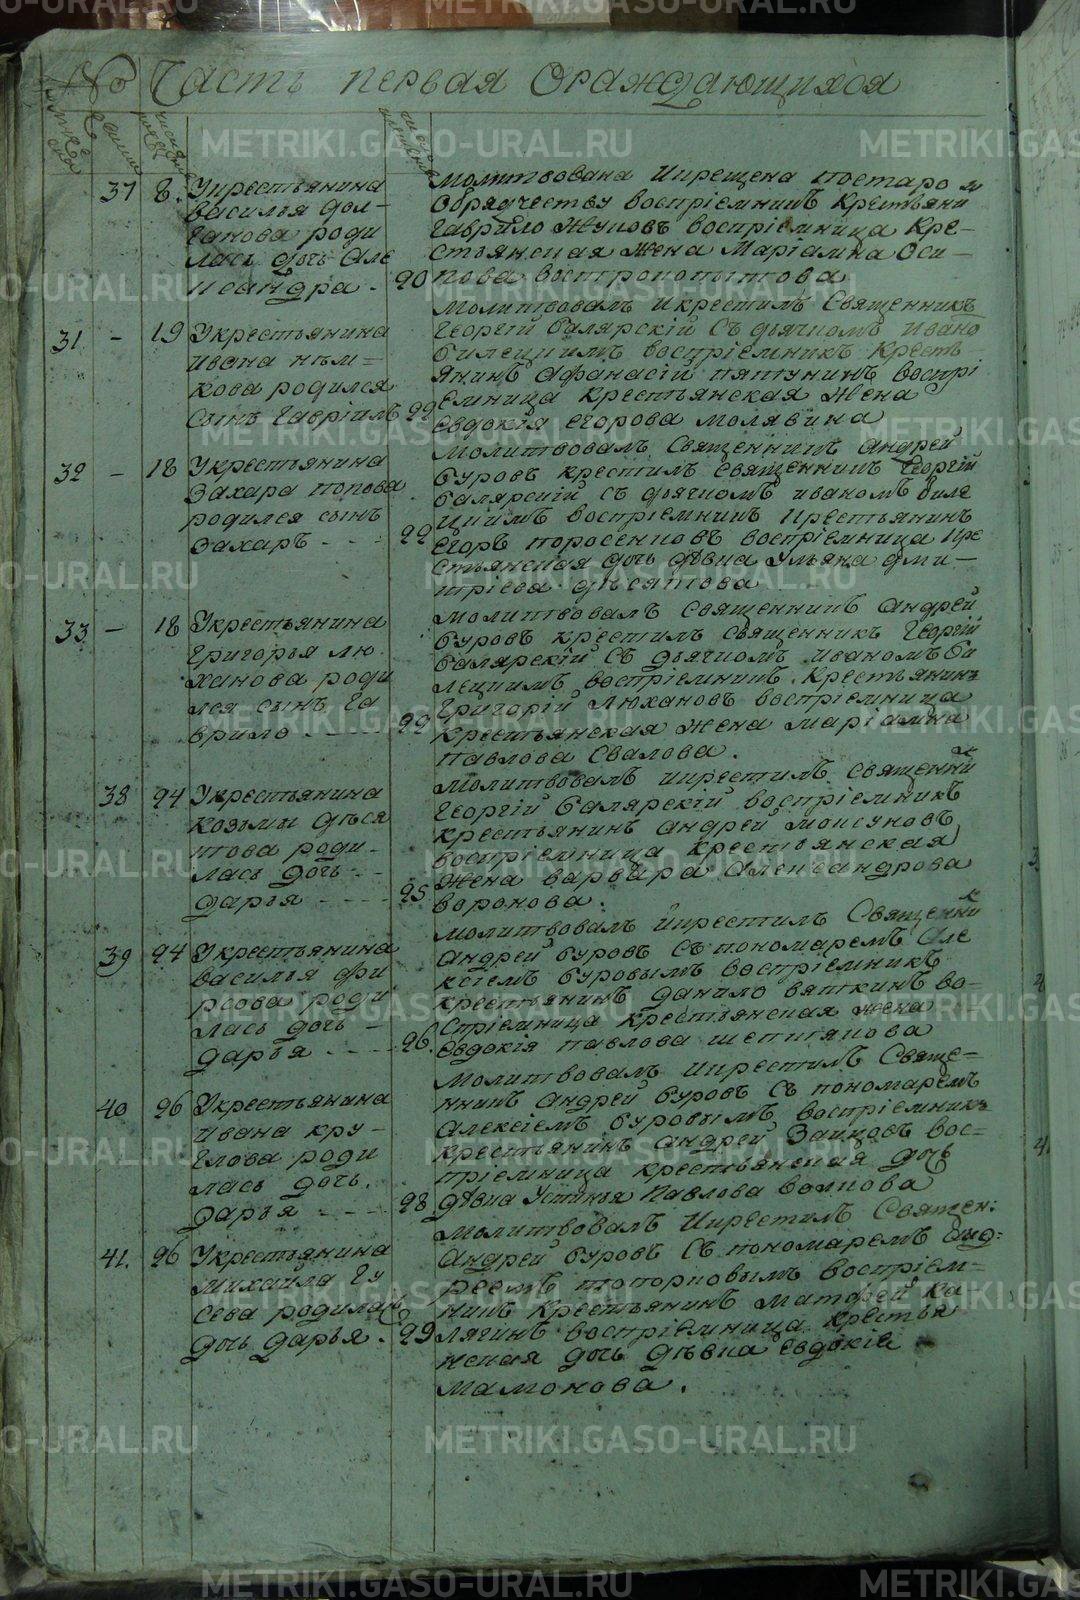 № Часть первая Ораждающихся
37 8. Укрестьянина
василья дол-
ганова роди
лась дочь але
ксандра. 20
молитвована икрещена постаро м
обрядчеству воспріемникъ крестьяни
гаврило Жуковъ воспріемница кре-
стьянская жена Маріамна Оси-
пова вострокопытова
31 - 19 Укрестьянина
ивана нѣм-
кова родился
сынъ гавріилъ 22
молитвовалъ икрестилъ Священникъ
Георгій балярскій съ дьячкомъ ивано
билецкимъ воспріемникъ кресть-
янинъ афанасій пяптунинъ воспрі
емница крестьянская жена
евдокія егорова молявина
32 - 18 Укрестьянина
Захара попова
родился сынъ
захаръ - - - 22
молитвовалъ священникъ андрей
буровъ крестилъ священникъ Георгій
балярскій съ дьячкомъ иваномъ биле
цкимъ воспріемникъ крестьянинъ
егоръ поросенковъ воспріемница кре
стьянская дочь дѣвка Ульяна дми-
тріева дѣсятова
33 - 18 Укрестьянина
григорья лю
ханова роди
лся сынъ га
врило - - - 22
молитвовалъ священникъ андрей
буровъ крестилъ священникъ Георгій
балярскій съ дьячкомъ иваномъ би
лецкимъ воспріемникъ крестьянинъ
григорій люхановъ воспріемница
крестьянская жена маріамна
павлова Свалова.
38 24 Укрестьянина
козьмы дѣся
това роди-
лась дочь - -
дарья - - - - 25
молитвовалъ икрестилъ священник
Георгій балярскій воспріемникъ
крестьянинъ андрей моксуновъ
воспріемница крестьянская
жена варвара александрова
воронова.
39 24 Укрестьянина
василья фи
рсова роди
лась дочь -
дарья - - - - 26.
молитвовалъ икрестилъ Священник
андрей буровъ съ пономаремъ але
ксіемъ буровымъ воспріемникъ
крестьянинъ данило вяткинъ во-
спріемница крестьянская жена
евдокія павлова шепшякова
40 26 Укрестьянина
ивана кру-
глова роди
лась дочь.
дарья - - - - 28
молитвовалъ икрестилъ Свяще-
нникъ андрей буровъ съ пономаремъ
алексіемъ буровымъ воспріемникъ
крестьянинъ андрей Зайковъ вос-
пріемница крестьянская дочь
дѣвка Устинья Павлова волкова
41. 26 Укрестьянина
михаила гу
сева родилась
дочь дарья. 29
молитвовалъ икрестилъ Священ:
андрей буровъ съ пономаремъ анд-
реемъ топорковымъ воспріем-
никъ крестьянинъ матфей ка
лягинъ воспріемница крестья
нская дочь дѣвка евдокіа
мамонова.
METRIKI.GASO-URAL.RU